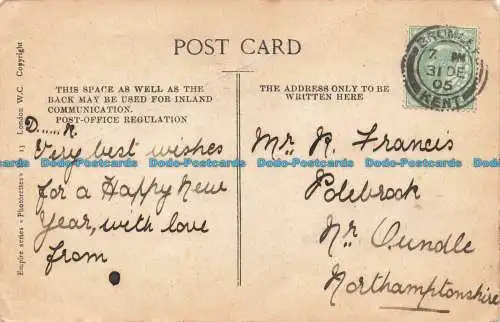 POST CARD
THIS SPACE AS WELL AS THE
BACK MAY BE USED FOR INLAND
COMMUNICATION.
POST-OFFICE REGULATION
D......R.
Very best wishes
for a Happy New
Year, with love
from
THE ADDRESS ONLY TO BE
WRITTEN HERE
Mr R. Francis
Polebrook
Nr Oundle
Northamptonshire
BROMLEY
7. PM
31 DE
05
KENT
Empire series « Photorettes » 13 London W.C. Copyright
Dodo-Postcards Dodo-Postcards Dodo-Postcards Dodo-Postcards